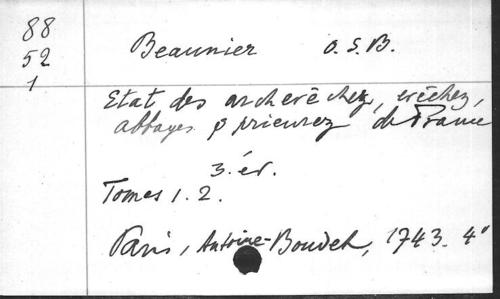 88
52
1
Beaunier O.S.B.
Etat des archevêchez, evêchez,
abbayes & prieurez de France
3. éd.
Tomes 1. 2.
Paris, Antoine-Boudet, 1743. 4°